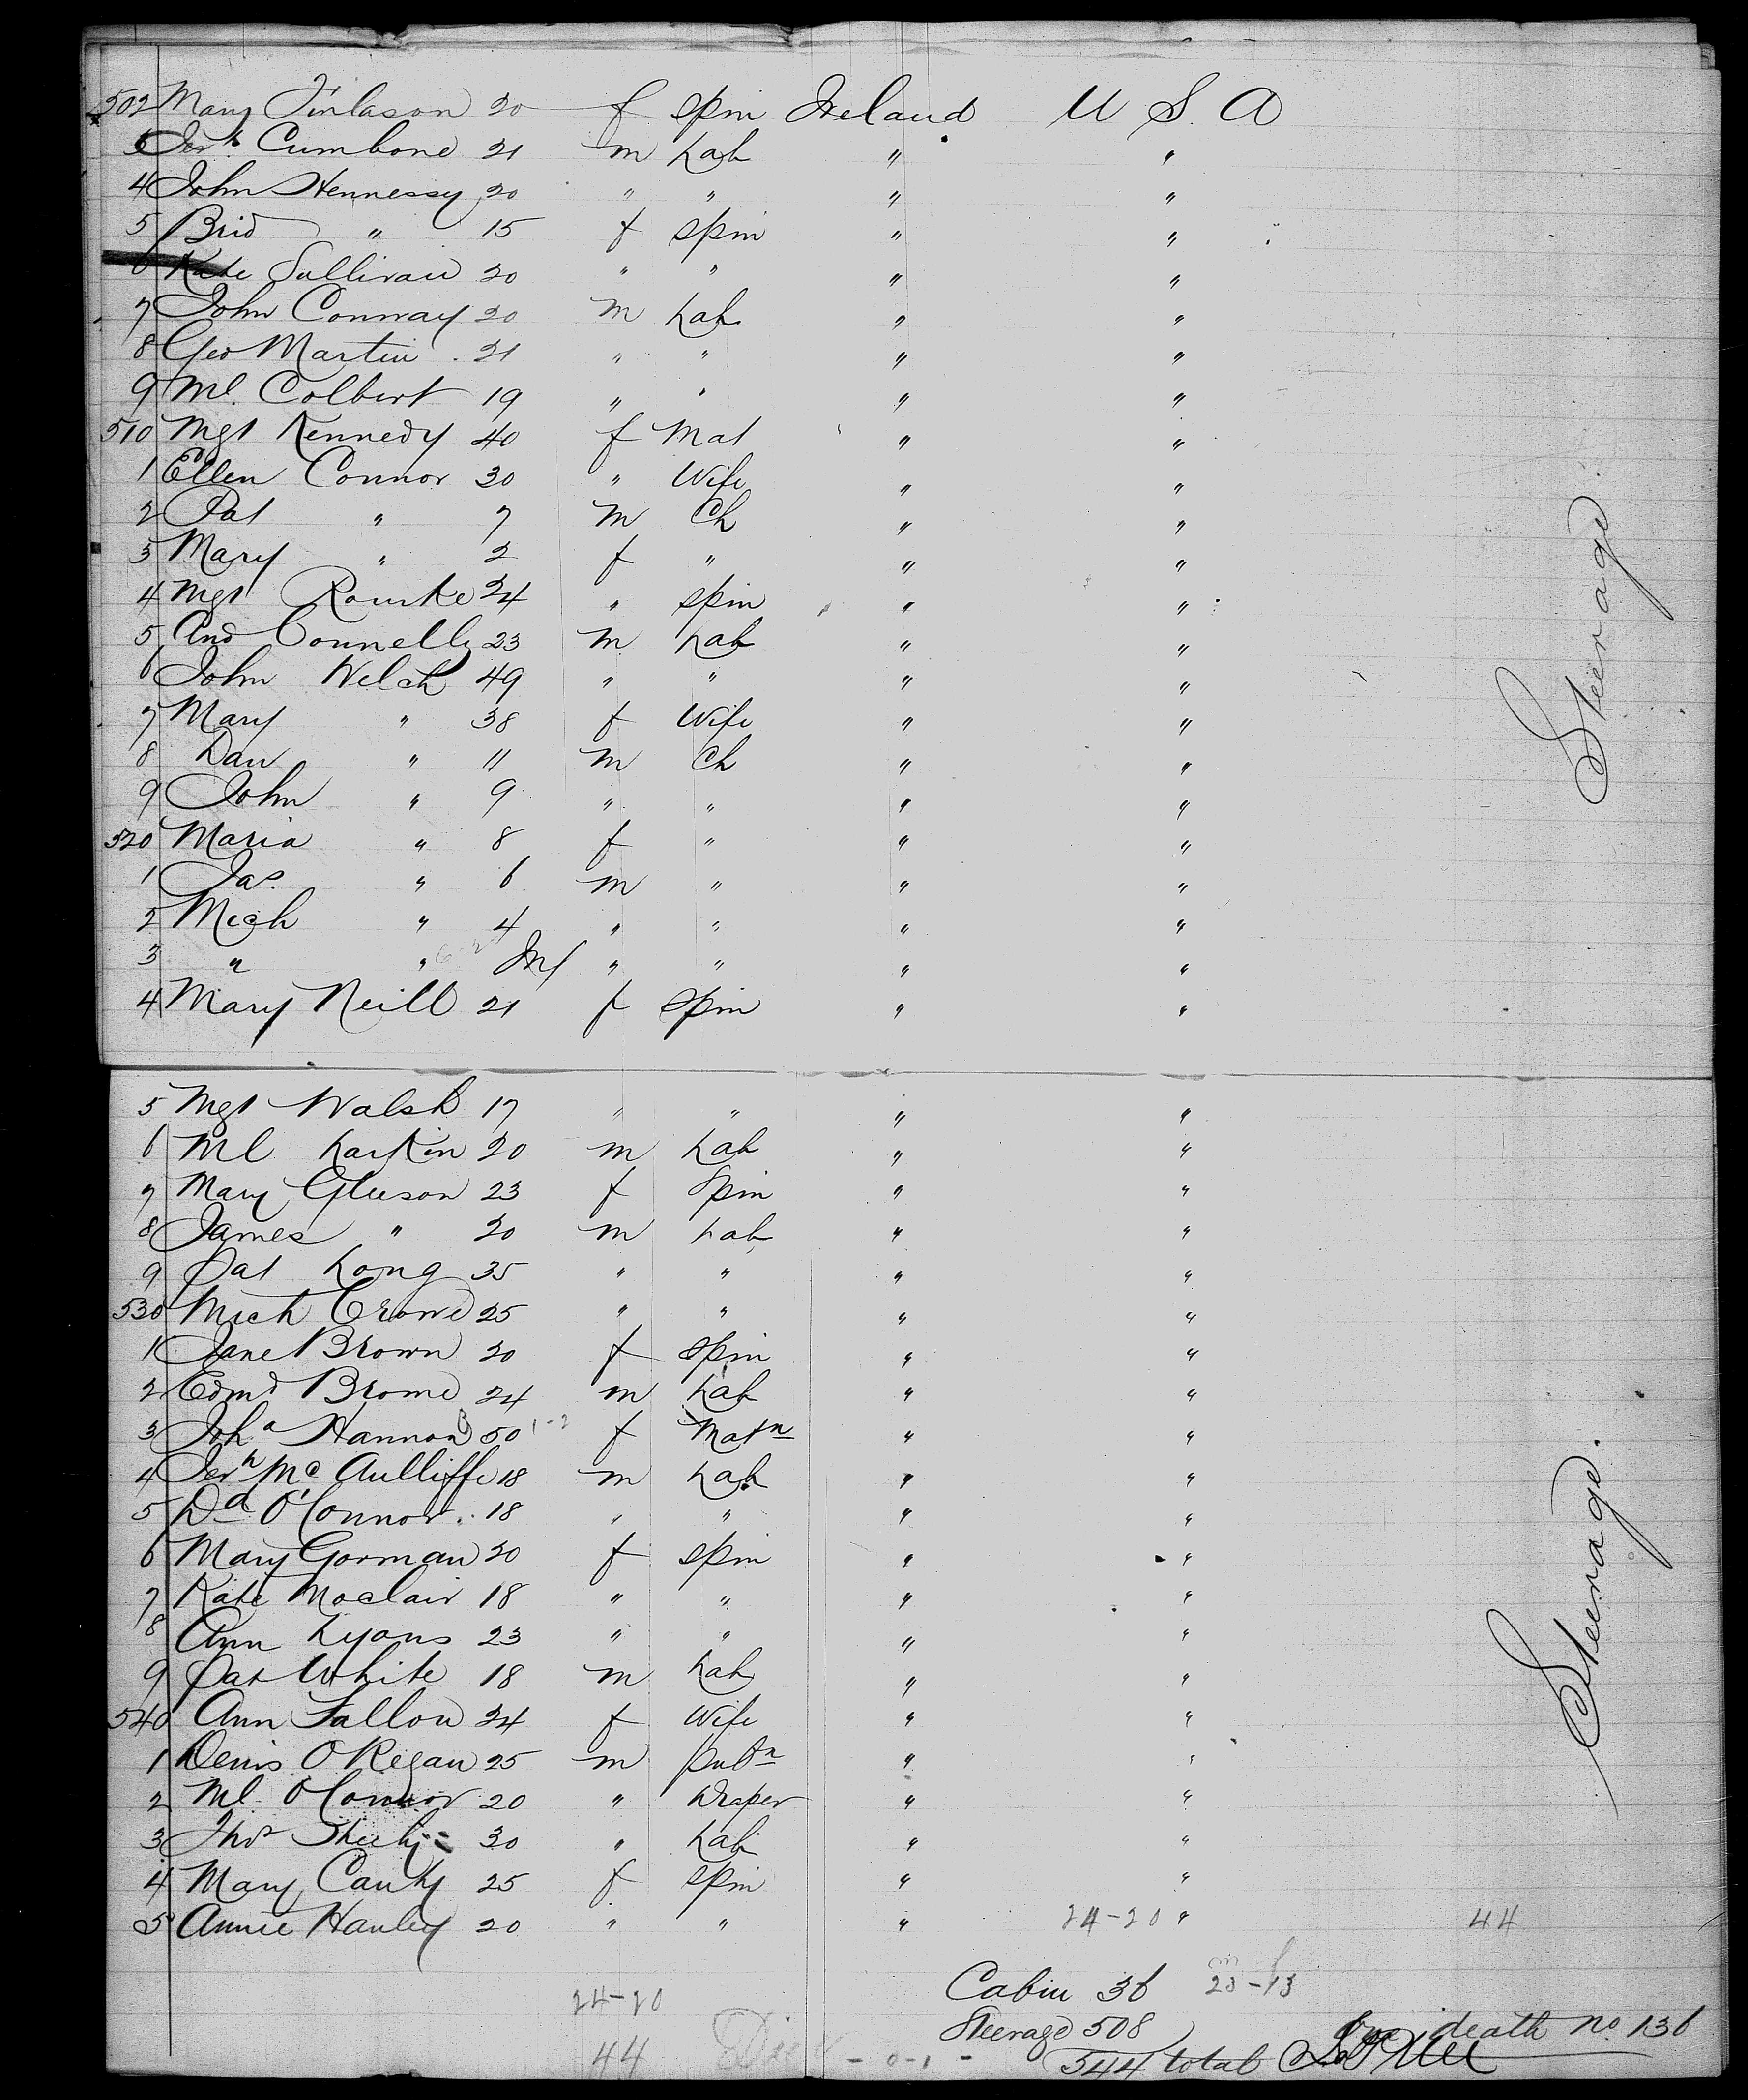 502 Mary Finlason 20 f spin Ireland U S. A
3 Jerh. Cumbone 21 m Lab " "
4 John Hennessy 20 " " " "
5 Brid " 15 f spin " "
6 Kate Sullivan 20 " " " "
7 John Conway 20 m Lab " "
8 Geo Martin 21 " " " "
9 Ml. Colbert 19 " " " "
510 Mgt Kennedy 40 f Mat " "
1 Ellen Connor 30 " Wife " "
2 Pat " 7 m Ch " "
3 Mary " 2 f " " "
4 Mgt Rourke 24 " spin " "
5 And Connelly 23 m Lab " "
6 John Welch 49 " " " "
7 Mary " 38 f Wife " "
8 Dan " 11 m Ch " "
9 John " 9 " " " "
520 Maria " 8 f " " "
1 Jas. " 6 m " " "
2 Mich " 4 " " " "
3 " " Inf " " " "
4 Mary Neill 21 f spin " "
Steerage
5 Mgt Walsh 17 " " " "
6 Ml Larkin 20 m Lab " "
7 Mary Gleeson 23 f Spin " "
8 James " 20 m Lab " "
9 Pat Long 35 " " " "
530 Mich Crowe 25 " " " "
1 Jane Brown 20 f spin " "
2 Edmd Brome 24 m Lab " "
3 Joha Hannon 50 1-2 f Matn " "
4 Jerh Mc Aulliffe 18 m Lab " "
5 Dd O'Connor 18 " " " "
6 Mary Gorman 20 f spin " "
7 Kate Moclair 18 " " " "
8 Ann Lyons 23 " " " "
9 Pat White 18 m Lab " "
540 Ann Fallon 24 f Wife " "
1 Denis O Regan 25 m Pubn " "
2 Ml. O Connor 20 " Draper " "
3 Thos Sheehy 30 " Lab " "
4 Mary Canty 25 f spin " "
5 Annie Hanley 20 " " " 24-20 " 44
Steerage.
Cabin 36 23-13
24-20
Steerage 508 death no 136
44 544 total